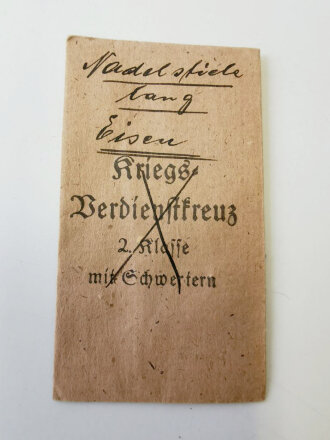 Nadelstiele
lang
Eisen
Kriegs-
Verdienstkreuz
2. Klasse
mit Schwertern